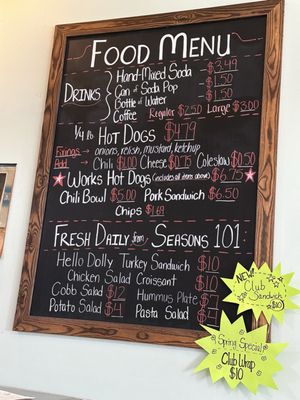 FOOD MENU
DRINKS
Hand-Mixed Soda $3.49
Can of Soda Pop $1.50
Bottle of Water $1.50
Coffee Regular $2.50 Large $3.00
1/4 lb HOT DOGS $4.79
Fixings → onions, relish, mustard, ketchup
Add → Chili $1.00 Cheese $0.75 Coleslaw $0.50
WORKS HOT DOGS (includes all items above) $6.75
Chili Bowl $5.00 Pork Sandwich $6.50
Chips $1.69
FRESH DAILY from SEASONS 101
Hello Dolly Turkey Sandwich $10
Chicken Salad Croissant $10
Cobb Salad $12 Hummus Plate $7
Potato Salad $4 Pasta Salad $4
NEW!
Club
Sandwich
$10
Spring Special
Club Wrap
$10